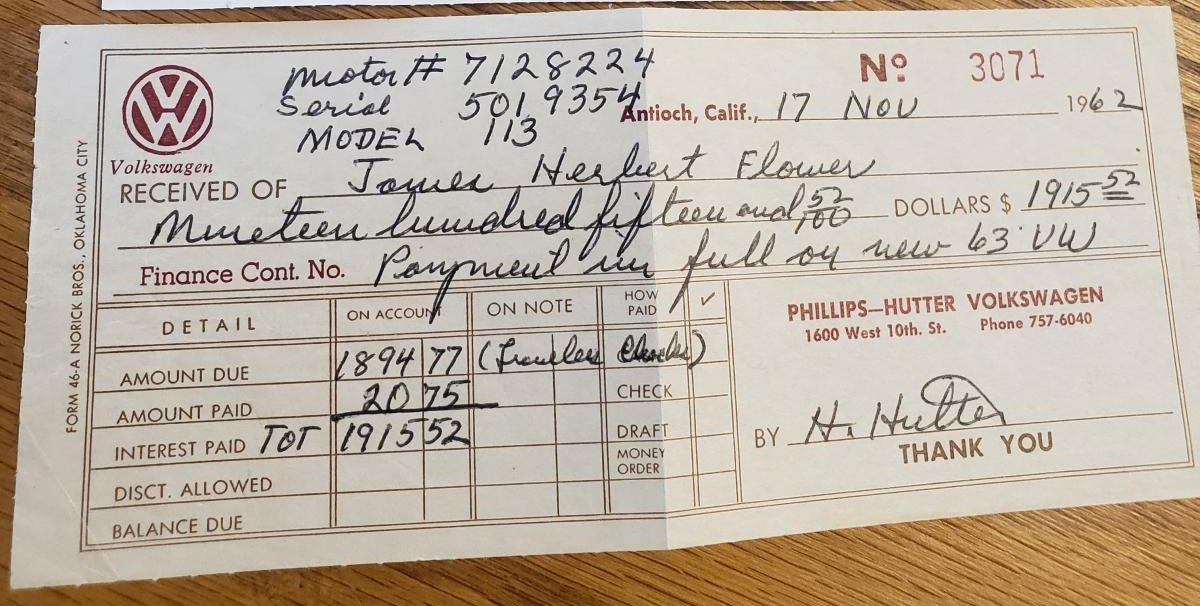 Motor # 7128224
Serial 5019354
MODEL 113
Nº 3071
VW
Volkswagen
Antioch, Calif., 17 Nov 1962
RECEIVED OF James Herbert Flower
Nineteen hundred fifteen and 52/100 DOLLARS $ 1915 52
Finance Cont. No. Payment in full on new 63 VW
DETAIL ON ACCOUNT ON NOTE HOW PAID ✓
AMOUNT DUE 1894 77 (Travelers Checks)
AMOUNT PAID 20 75 CHECK
INTEREST PAID TOT 1915 52 DRAFT
DISCT. ALLOWED MONEY ORDER
BALANCE DUE
PHILLIPS–HUTTER VOLKSWAGEN
1600 West 10th. St. Phone 757-6040
BY H. Hutter
THANK YOU
FORM 46-A NORICK BROS., OKLAHOMA CITY